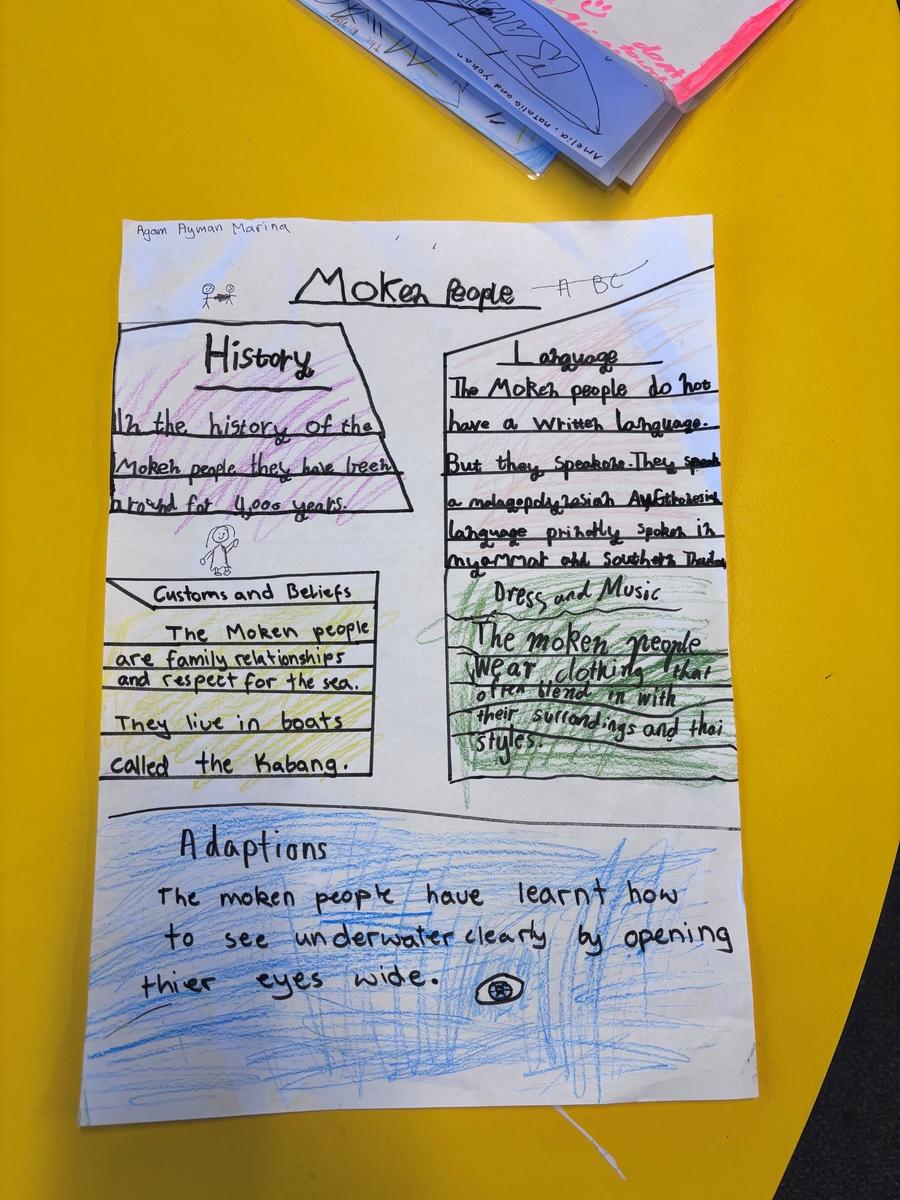 Amelia, natalia and Yohan
Agam Ayman Marina
Moken People
A BC
History
In the history of the
Moken people they have been
around for 4,000 years.
Language
The Moken people do not
have a written language.
But they speak one. They speak
a malagopolynasian
language printly spoken in
myammar and Southern
Customs and Beliefs
The Moken people
are family relationships
and respect for the sea.
They live in boats
called the Kabang.
Dress and Music
The moken people
wear clothing that
often blend in with
their surrondings and thai
styles.
Adaptions
The moken people have learnt how
to see underwater clearly by opening
thier eyes wide.